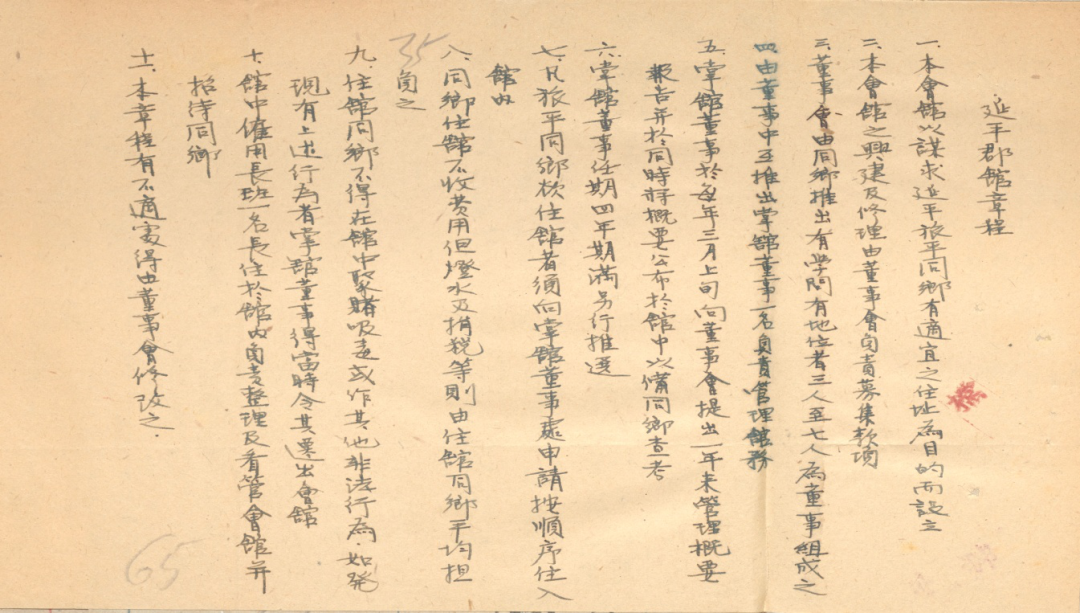 延平郡館章程
一、本會館以謀求延平旅平同鄉有適宜之住址為目的而設立
二、本會館之興建及修理由董事會負責募集款項
三、董事會由同鄉推出有學問有地位者三人至七人為董事組成之
四、由董事中互推出掌館董事一名負責管理館務
五、掌館董事於每年三月上旬向董事會提出一年來管理概要
報告并於同時將概要公布於館中以備同鄉查考
六、掌館董事任期四年期滿另行推選
七、凡旅平同鄉欲住館者須向掌館董事處申請按順序住入
館內
八、同鄉住館不收費用但燈水及捐税等則由住館同鄉平均担
負之
35
九、住館同鄉不得在館中聚賭吸毒或作其他非法行為、如發
現有上述行為者掌館董事得當時令其遷出會館
十、館中僱用長班一名長住於館內負責整理及看管會館并
招待同鄉
十一、本章程有不適處得由董事會修改之.
65